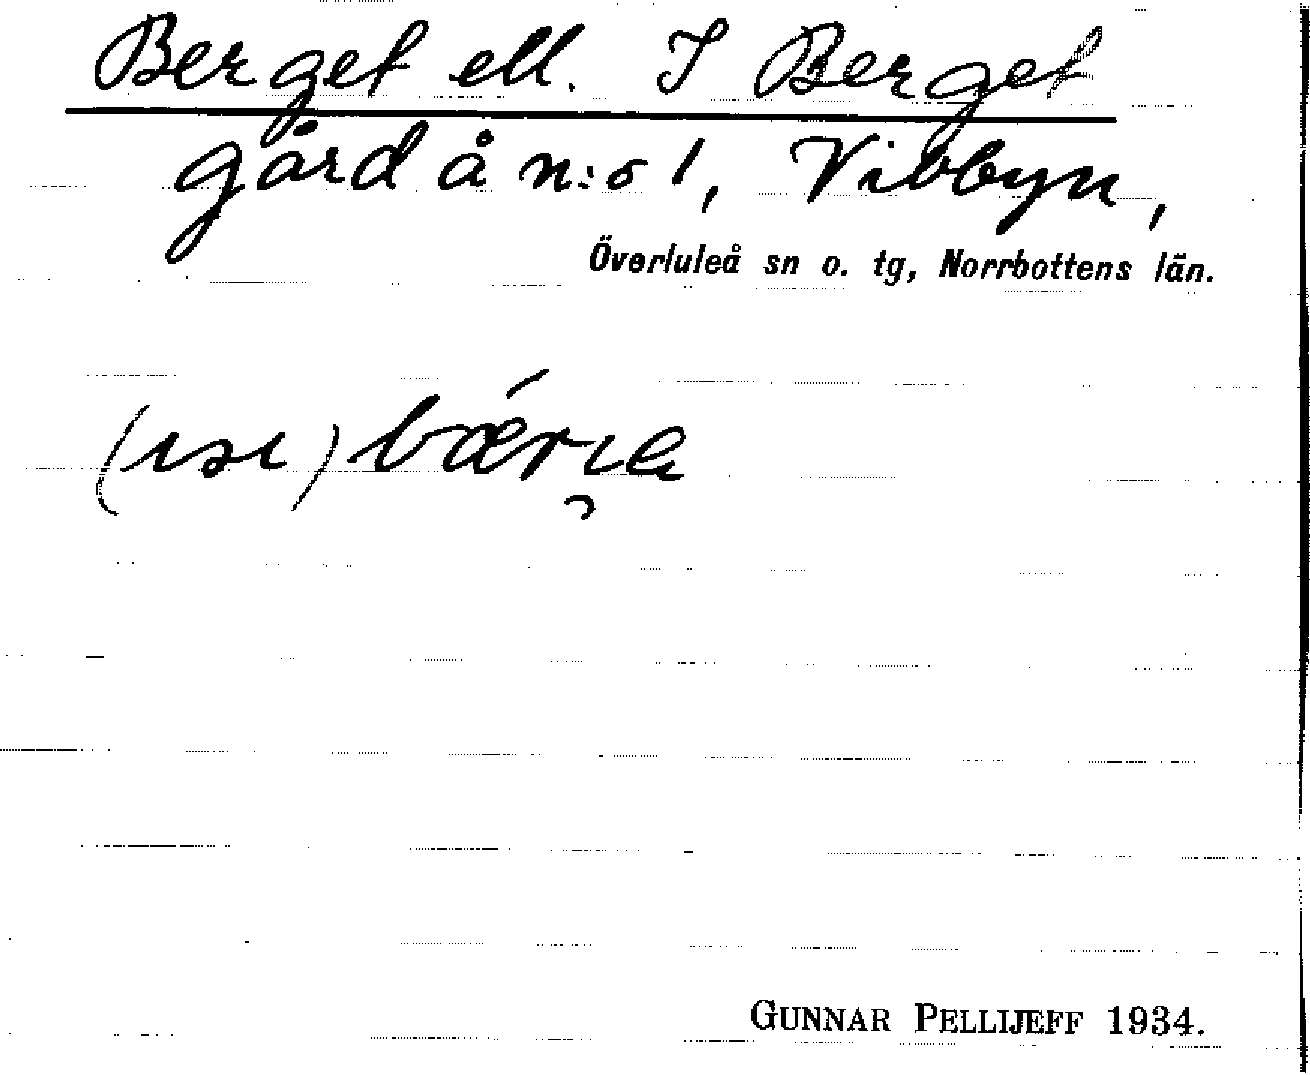 Berget ell. I Berget
gård å n:o 1, Vibbyn,
Överluleå sn o. tg, Norrbottens län.
GUNNAR PELLIJEFF 1934.